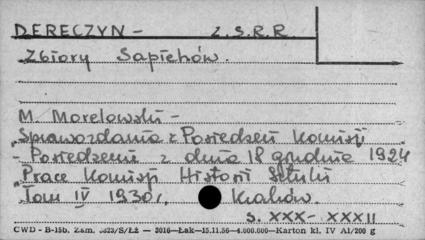 DERECZYN - Z.S.R.R.
Zbiory Sapiehów.
M. Morelowski -
"Sprawozdania z Posiedzeń Komisji
Posiedzenie z dnia 18 grudnia 1924
"Prace Komisji Historii Sztuki
Tom IV 1930 r, Kraków.
s. XXX - XXXII
CWD - B-15b. Zam. 5823/S/Łż — 3016—Łak—15.11.56—4.000.000—Karton kl. IV A1/200 g